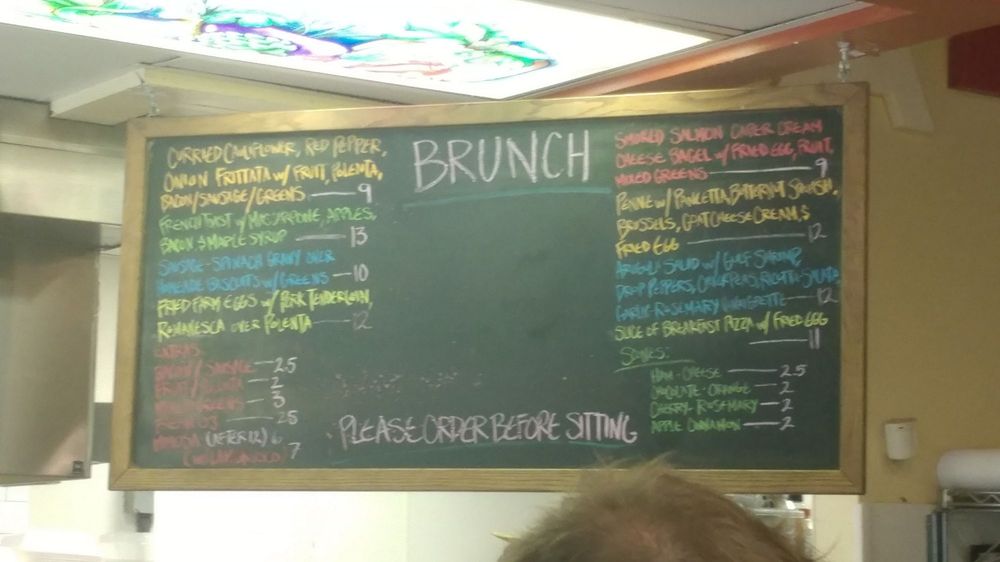 BRUNCH
CURRIED CAULIFLOWER, RED PEPPER,
ONION FRITTATA w/ FRUIT, POLENTA,
BACON/SAUSAGE/GREENS — 9
FRENCH TOAST w/ MASCARPONE, APPLES,
BACON & MAPLE SYRUP — 13
SAUSAGE-SPINACH GRAVY OVER
BISCUITS w/ GREENS — 10
FRIED FARM EGGS w/ PORK TENDERLOIN,
ROMANESCA OVER POLENTA — 12
EXTRAS
BACON/SAUSAGE — 2.5
FRUIT/POLENTA — 2
GREENS — 3
2.5
MIMOSA (AFTER 12) 6
7
SMOKED SALMON CAPER CREAM
CHEESE BAGEL w/ FRIED EGG, FRUIT,
MIXED GREENS — 9
PENNE w/ PANCETTA, BUTTERNUT SQUASH,
BRUSSELS, GOAT CHEESE CREAM, &
FRIED EGG — 12
SALAD w/ GULF SHRIMP,
DROP PEPPERS, CHICKPEAS, RICOTTA SALATA,
GARLIC-ROSEMARY VINAIGRETTE — 12
SLICE OF BREAKFAST PIZZA w/ FRIED EGG
— 11
SCONES:
HAM-CHEESE — 2.5
CHOCOLATE-ORANGE — 2
CHERRY-ROSEMARY — 2
APPLE CINNAMON — 2
PLEASE ORDER BEFORE SITTING